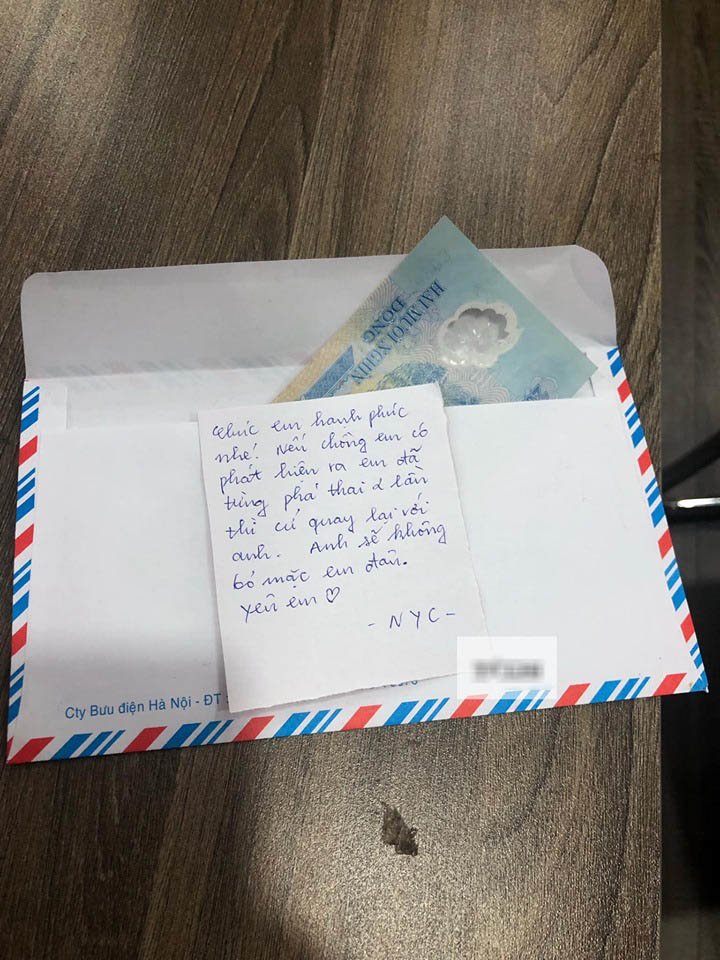 HAI MƯƠI NGHÌN
ĐỒNG
Chúc em hạnh phúc
nhé! Nếu chồng em có
phát hiện ra em đã
từng phá thai 2 lần
thì cứ quay lại với
anh. Anh sẽ không
bỏ mặc em đâu.
Yêu em ♡
- NYC -
Cty Bưu điện Hà Nội - ĐT :